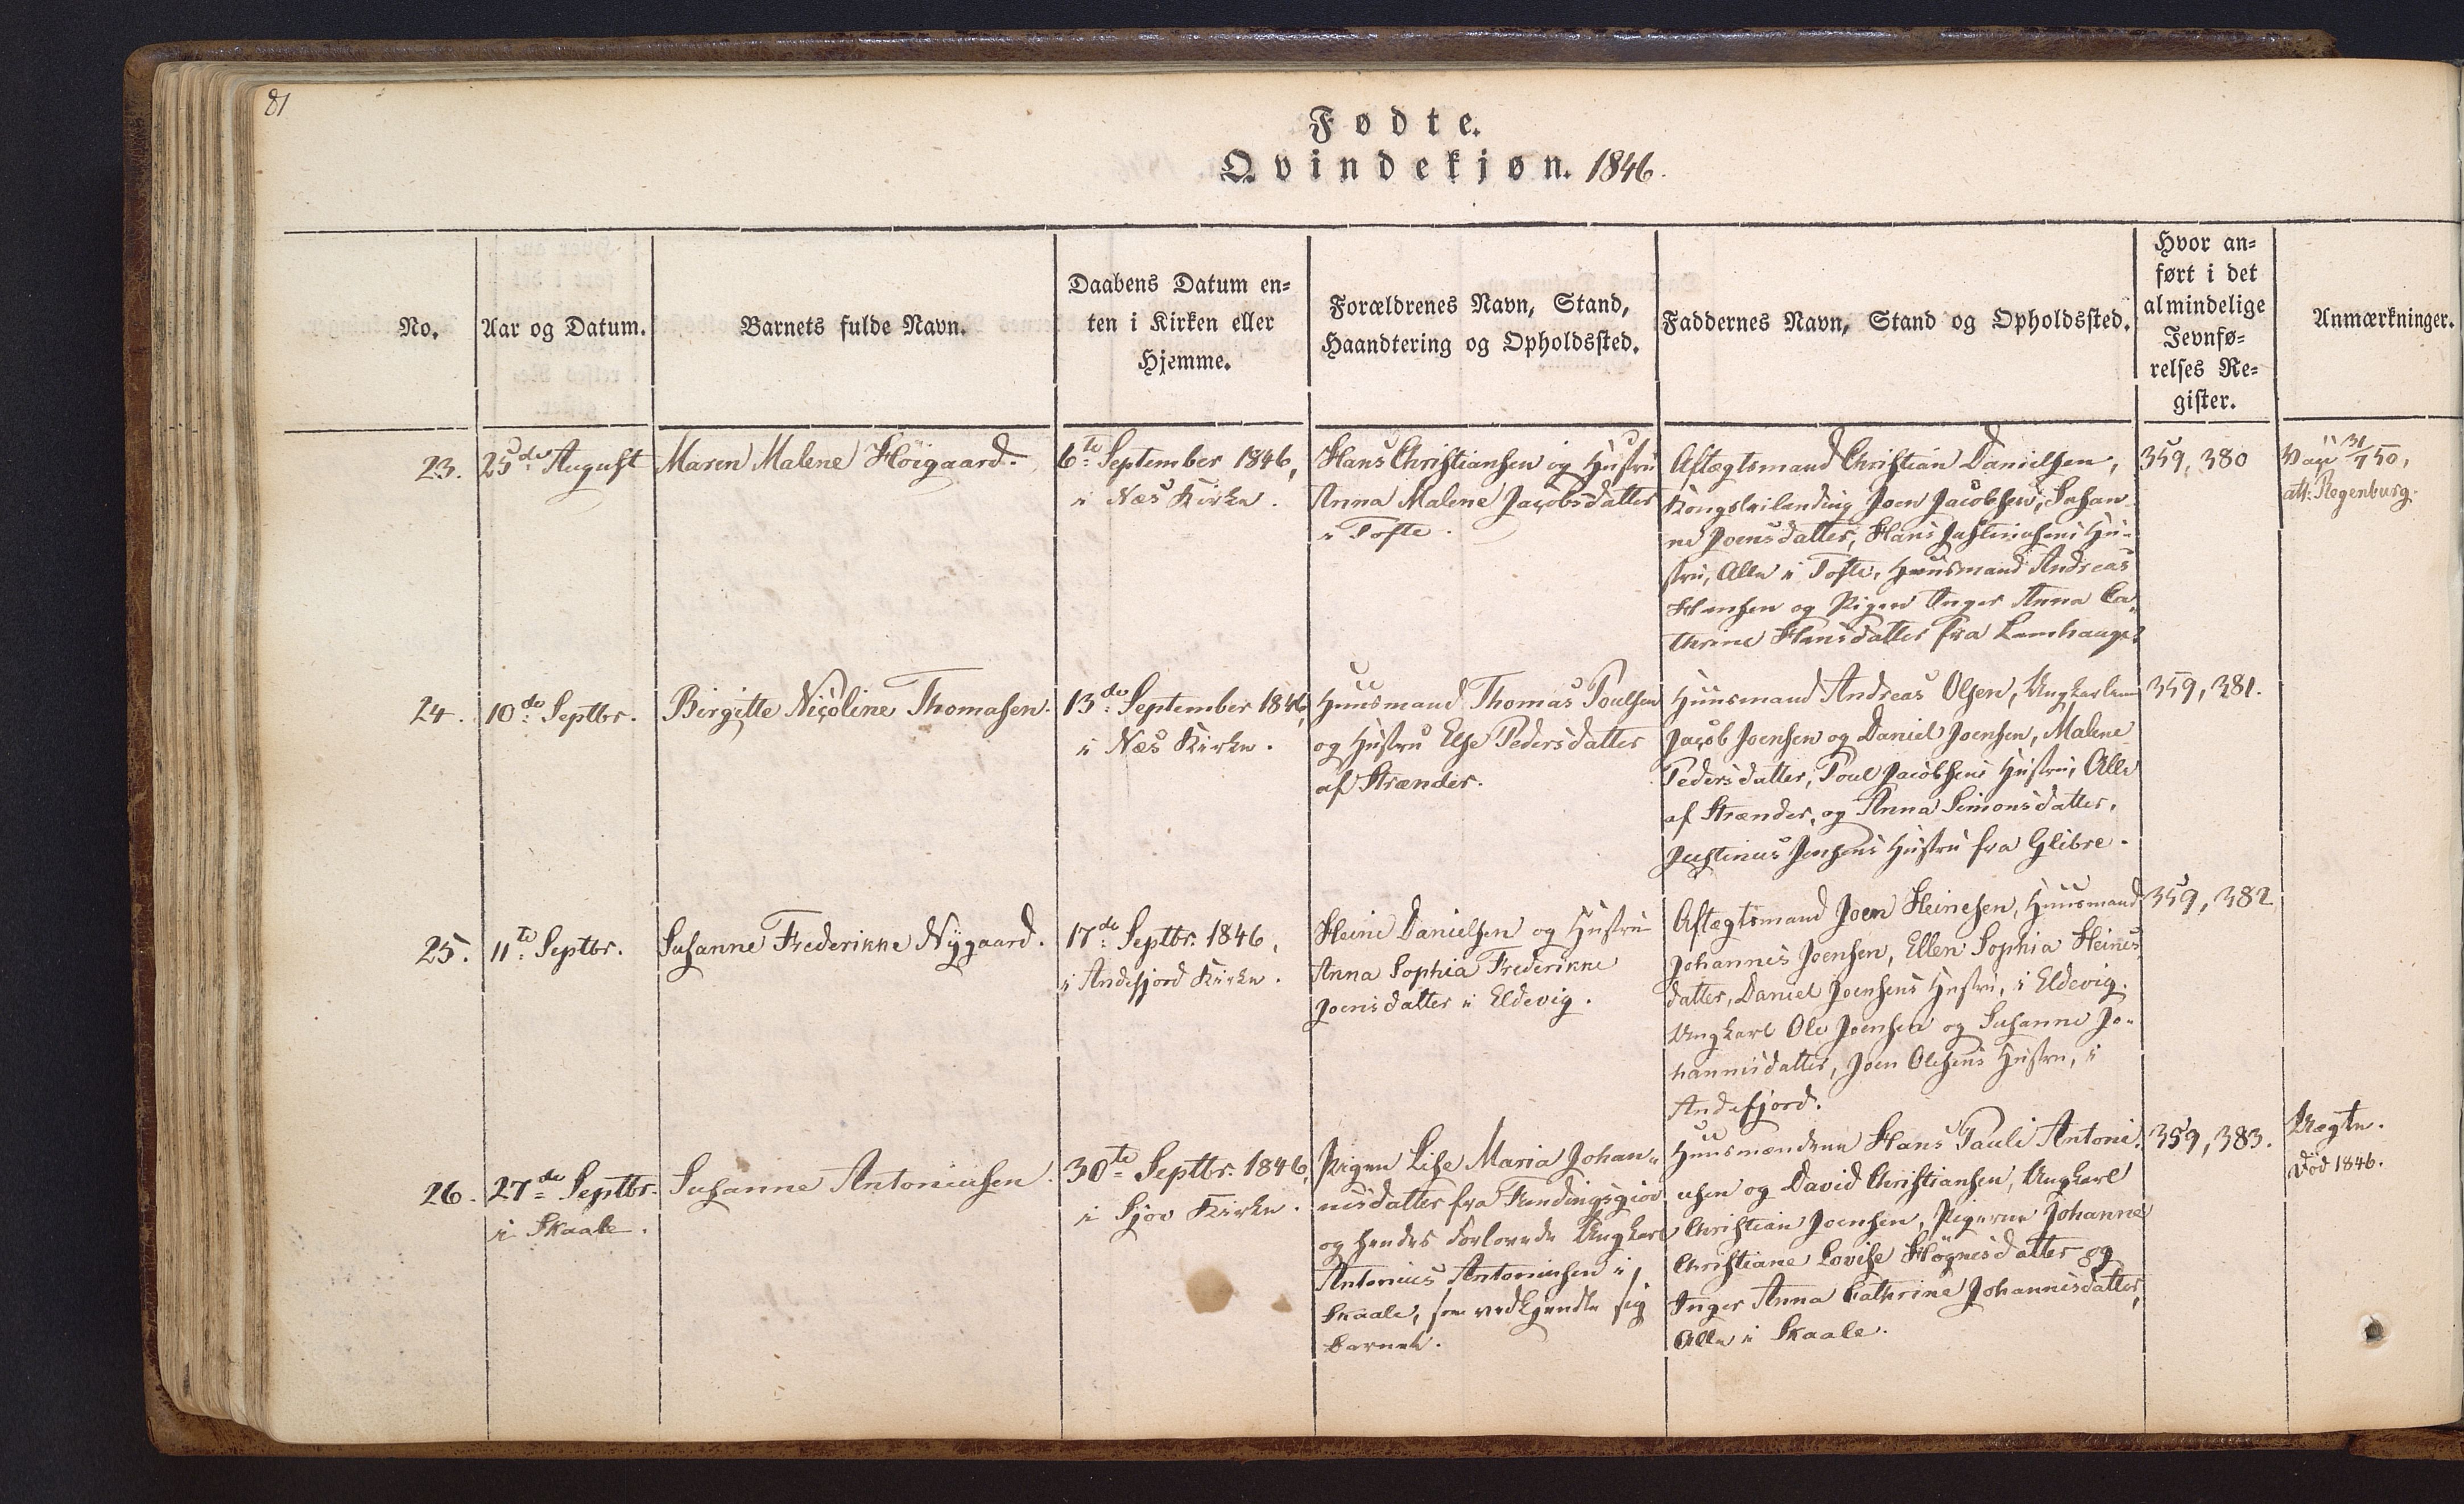 81
Fødte.
Qvindekjøn. 1846.
No.
Aar og Datum.
Barnets fulde Navn.
Daabens Datum en-
ten i Kirken eller
Hjemme.
Forældrenes Navn, Stand,
Haandtering og Opholdssted.
Faddernes Navn, Stand og Opholdssted.
Hvor an-
ført i det
almindelige
Jevnfø-
relses Re-
gister.
Anmærkninger.
23.
25de August
Maren Malene Höigaard.
6te September 1846,
i Næs Kirke.
Hans Christiansen og Hustru
Anna Malene Jacobsdatter
i Tofte.
Aftægtsmand Christian Danielsen,
Kongsleilending Joen Jacobsen, Susan-
ne Joensdatter, Hans Justinusens Hu-
stru, Alle i Tofte, Huusmand Andreas
Hansen og Pigen Inger Anna Ca-
thrine Hansdatter fra Lamhauge.
359, 380
Vac: 31/7 50,
att: Regenburg.
24.
10de Septbr.
Birgitte Nicoline Thomasen.
13de September 1846,
i Næs Kirke.
Huusmand Thomas Poulsen
og Hustru Else Pedersdatter
af Strænder.
Huusmand Andreas Olsen, Ungkarlene
Jacob Joensen og Daniel Joensen, Malene
Pedersdatter, Poul Jacobsens Hustru, Alle
af Strænder, og Anna Simonsdatter,
Justinus Jensens Hustru fra Glibre.
359, 381.
25.
11te Septbr.
Susanne Frederikke Nÿgaard.
17de Septbr. 1846,
i Andefjord Kirke.
Heine Danielsen og Hustru
Anna Sophia Frederikke
Joensdatter i Eldevig.
Aftægtsmand Joen Heinesen, Huusmand
Johannes Joensen, Ellen Sophia Heines-
datter, Daniel Joensens Hustru, i Eldevig.
Ungkarl Ole Joensen og Susanne Jo-
hannesdatter, Joen Olesens Hustru, i
Andefjord.
359, 382
26.
27de Septbr.
i Skaale.
Susanne Antoniusen.
30te Septbr. 1846,
i Sjov Kirke.
Pigen Lise Maria Johan-
nesdatter fra Fundingsgiov
og hendes Forlovede Ungkarl
Antonius Antoniusen i
Skaale, som vedkjendte sig
Barnet.
Huusmændene Hans Pauli Antoni-
usen og David Christiansen, Ungkarl
Christian Joensen, Pigerne Johanne
Christiane Lovise Högnesdatter og
Inger Anna Cathrine Johannesdatter,
Alle i Skaale.
359, 383.
Uægte.
Död 1846.